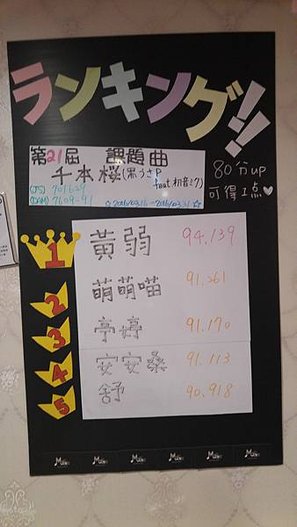 ランキング!!
第21屆 課題曲
千本桜(黒うさP
feat.初音ミク)
(JS) 701624
(DAM) 7609-91
☆2016/03/16~2016/03/31☆
80分up
可得1点♥
1 黃弱 94.139
2 萌萌喵 91.361
3 亭婷 91.170
4 安安桑 91.113
5 舒 90.918